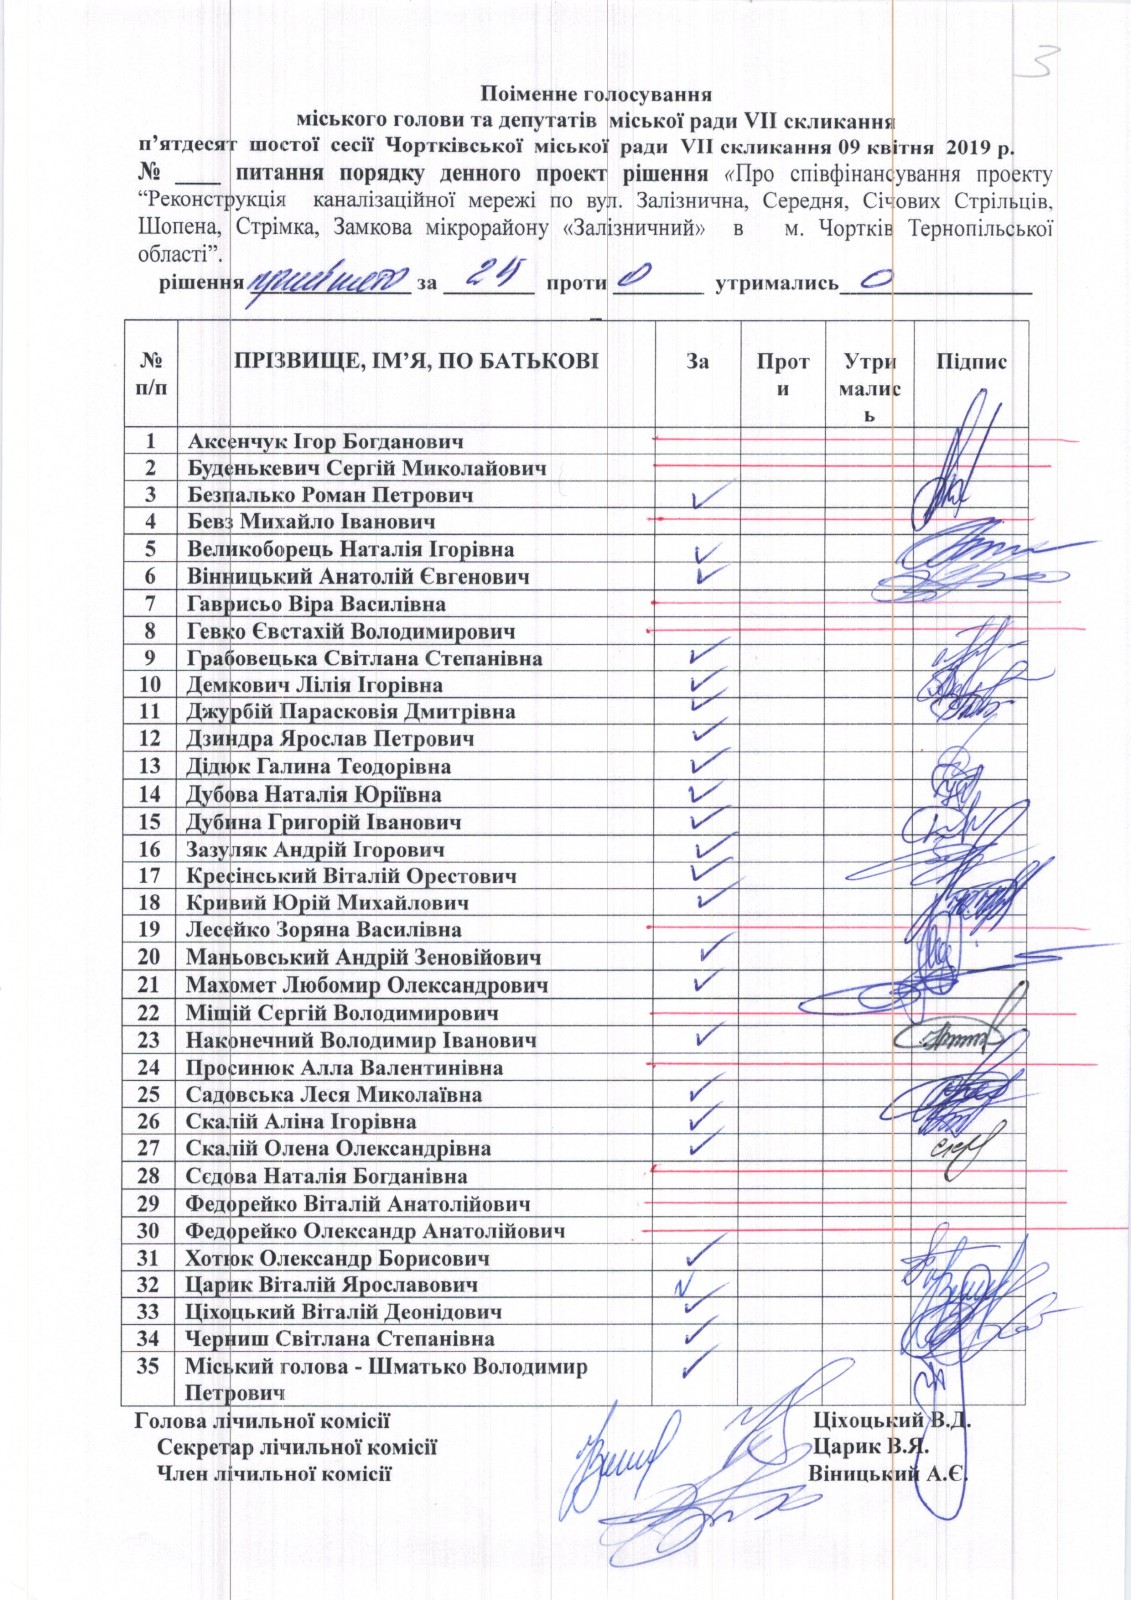 3
Поіменне голосування
міського голови та депутатів міської ради VII скликання
п’ятдесят шостої сесії Чортківської міської ради VII скликання 09 квітня 2019 р.
№ ____ питання порядку денного проект рішення «Про співфінансування проекту
“Реконструкція каналізаційної мережі по вул. Залізнична, Середня, Січових Стрільців,
Шопена, Стрімка, Замкова мікрорайону «Залізничний» в м. Чортків Тернопільської
області”.
рішення прийнято за 24 проти 0 утримались 0
№ п/п ПРІЗВИЩЕ, ІМ’Я, ПО БАТЬКОВІ За Проти Утрималис ь Підпис
1 Аксенчук Ігор Богданович
2 Буденькевич Сергій Миколайович
3 Безпалько Роман Петрович ✓
4 Бевз Михайло Іванович
5 Великоборець Наталія Ігорівна ✓
6 Вінницький Анатолій Євгенович ✓
7 Гаврисьо Віра Василівна
8 Гевко Євстахій Володимирович
9 Грабовецька Світлана Степанівна ✓
10 Демкович Лілія Ігорівна ✓
11 Джурбій Парасковія Дмитрівна ✓
12 Дзиндра Ярослав Петрович ✓
13 Дідюк Галина Теодорівна ✓
14 Дубова Наталія Юріївна ✓
15 Дубина Григорій Іванович ✓
16 Зазуляк Андрій Ігорович ✓
17 Кресінський Віталій Орестович ✓
18 Кривий Юрій Михайлович ✓
19 Лесейко Зоряна Василівна
20 Маньовський Андрій Зеновійович ✓
21 Махомет Любомир Олександрович ✓
22 Міщій Сергій Володимирович
23 Наконечний Володимир Іванович ✓
24 Просинюк Алла Валентинівна
25 Садовська Леся Миколаївна ✓
26 Скалій Аліна Ігорівна ✓
27 Скалій Олена Олександрівна ✓
28 Сєдова Наталія Богданівна
29 Федорейко Віталій Анатолійович
30 Федорейко Олександр Анатолійович
31 Хотюк Олександр Борисович ✓
32 Царик Віталій Ярославович ✓
33 Ціхоцький Віталій Деонідович ✓
34 Черниш Світлана Степанівна ✓
35 Міський голова - Шматько Володимир ✓
Петрович
Голова лічильної комісії Ціхоцький В.Д.
Секретар лічильної комісії Царик В.Я.
Член лічильної комісії Віницький А.Є.